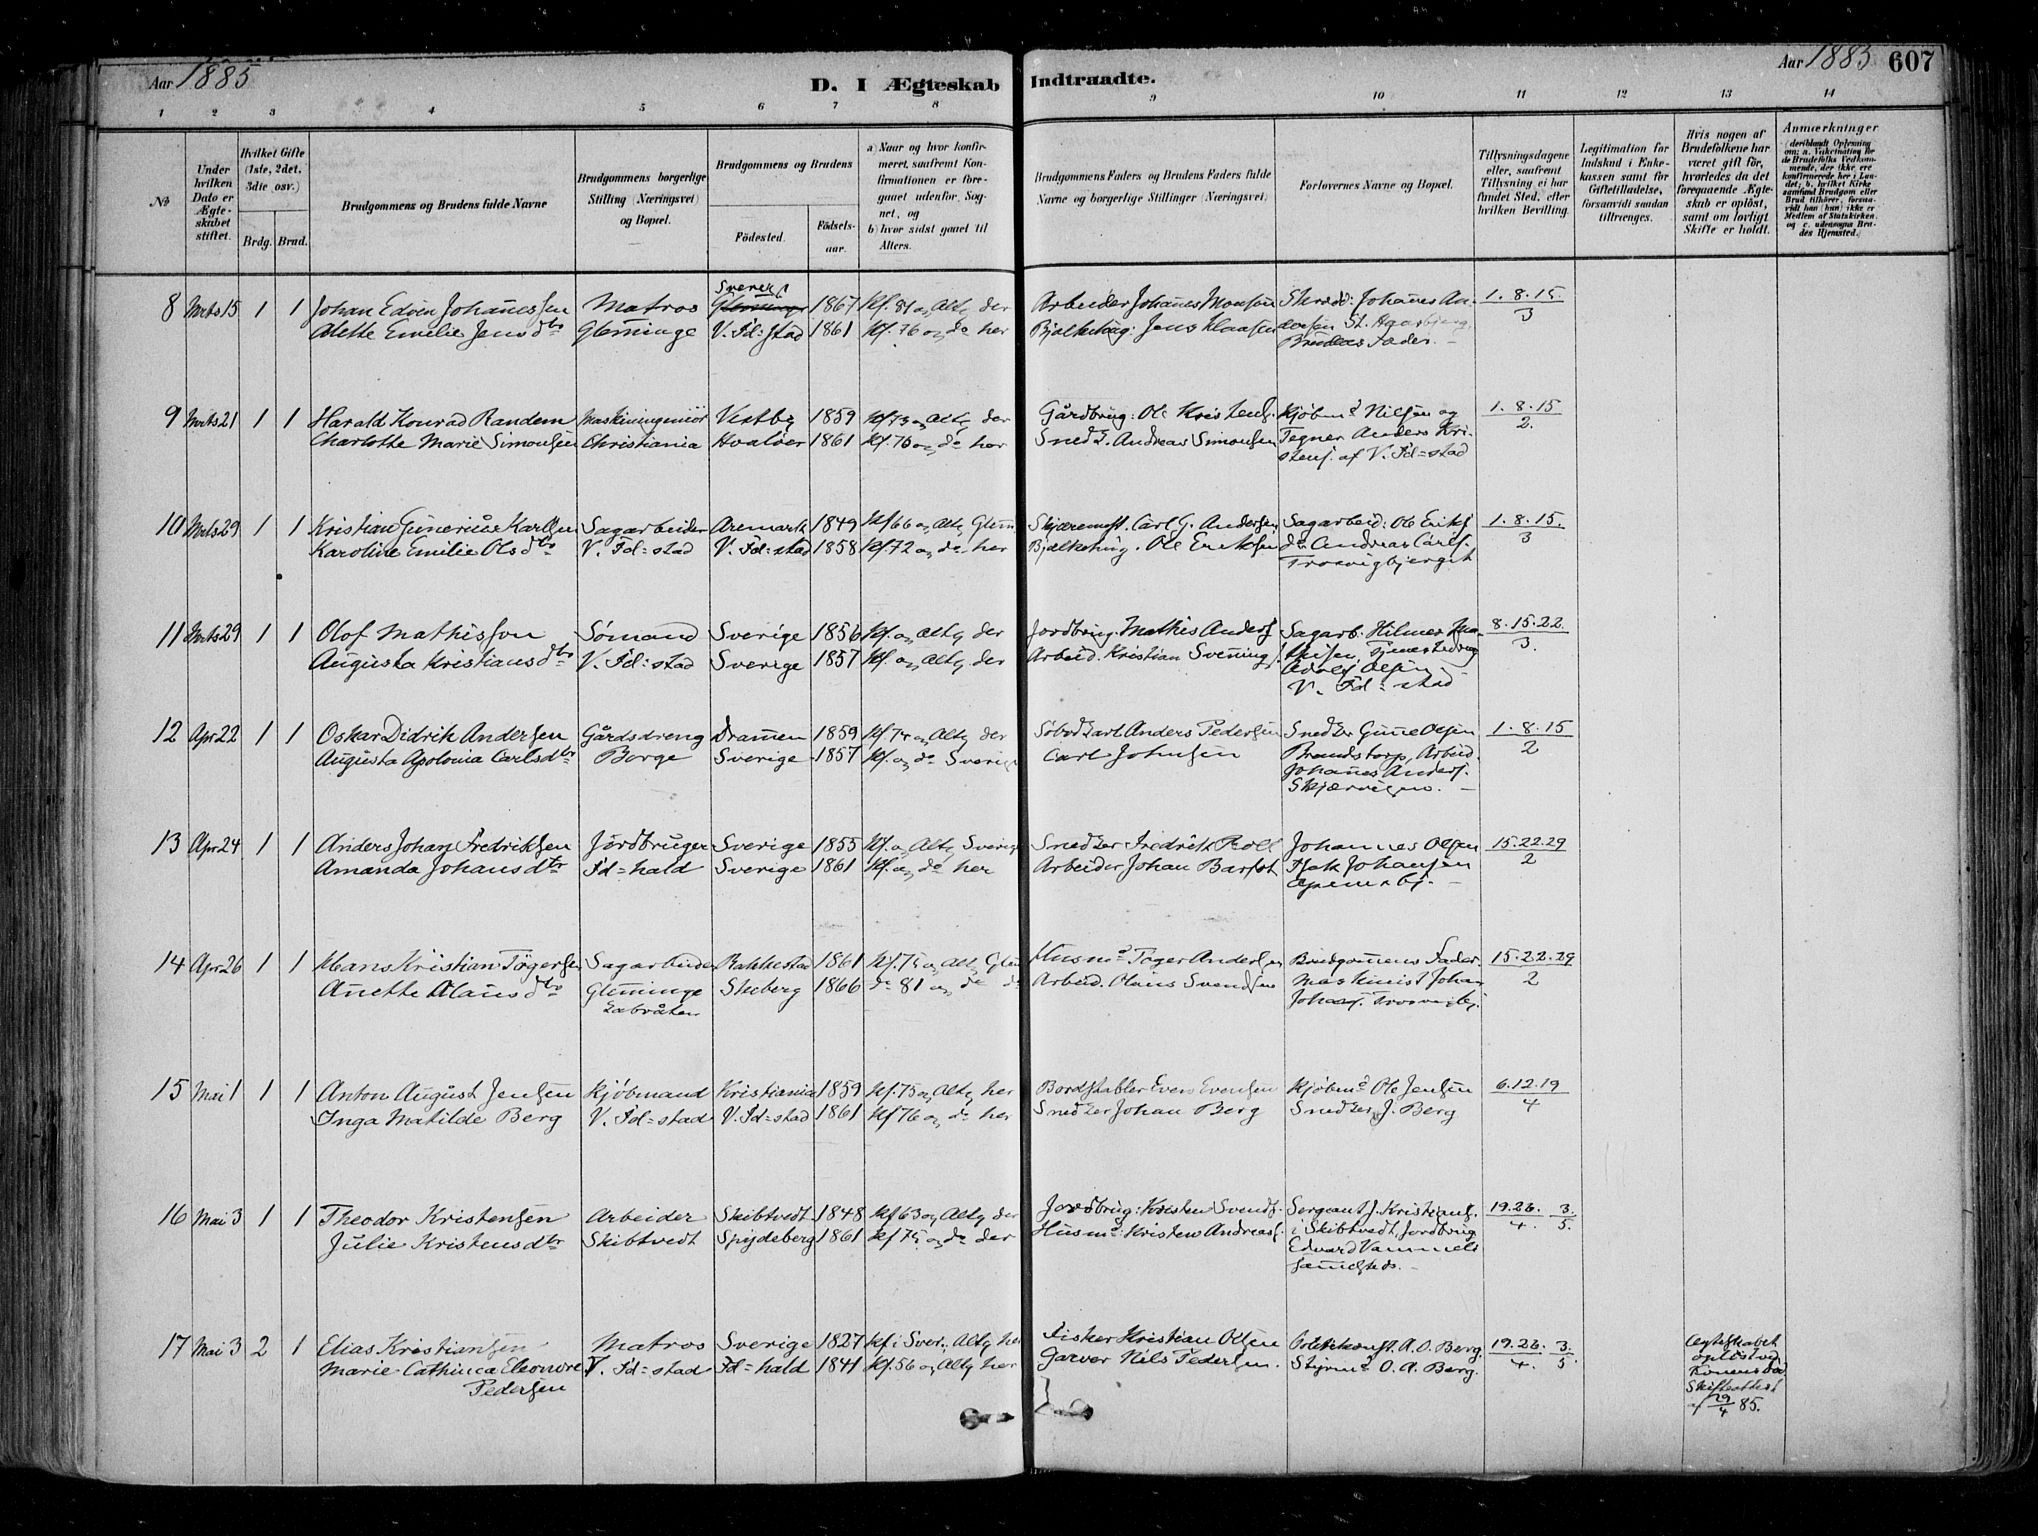 Aar 1885
D. I Ægteskab Indtraadte.
Aar 1885 607
1 2 3 4 5 6 7 8 9 10 11 12 13 14
No
Under hvilken Dato er Ægteskabet stiftet.
Hvilket Gifte (1ste, 2det, 3die osv.)
Brdg. Brud.
Brudgommens og Brudens fulde Navne
Brudgommens borgerlige Stilling (Næringsvei) og Bopæl.
Brudgommens og Brudens
Fødested.
Fødselsaar.
a) Naar og hvor konfirmeret, saafremt Konfirmationen er foregaaet udenfor Sognet, og
b) hvor sidst gaaet til Alters.
Brudgommens Faders og Brudens Faders fulde Navne og borgerlige Stillinger (Næringsvei)
Forlovernes Navne og Bopæl.
Tillysningsdagene eller, saafremt Tillysning ei har fundet Sted, efter hvilken Bevilling.
Legitimation for Indskud i Enkekassen samt for Giftetilladelse, forsaavidt saadan tiltrænges.
Hvis nogen af Brudefolkene har været gift før, hvorledes da det foregaaende Ægteskab er opløst, samt om lovligt Skifte er holdt.
Anmærkninger (deriblandt Oplysning om: a. Vakcination for de Brudefolks Vedkommende, der ikke ere konfirmerede her i Landet; b. hvilket Kirkesamfund Brudgom eller Brud tilhører, forsaavidt han (hun) ikke er Medlem af Statskirken, og c. udensogns Brudes Hjemsted.)
8 Mrts 15 1 1 Johan Edvin Johannessen Matros Sverig 1867 Kf. 81 og Altg der Arbeider Johanes Monsen Skrædd: Johanes An- 1. 8. 15
Alette Emilie Jensdtr Glemminge V. Fd=stad 1861 Kf. 76 og do her Bjelkehug: Jens Klaasen dersen St. 3
Brudens Fader.
9 Mrts 21 1 1 Harald Konrad Randem Maskiningeniör Vestby 1859 Kf 73 og Altg der Gårdbrug: Ole Kristens. Kjøbmd Nilsen og 1. 8. 15
Charlotte Marie Simonsen Christiania Hvaløer 1861 Kf. 76 og do her Snedk. Andreas Simonsen Tegner Anders Kri- 2.
stens. af V. Fd=stad
10 Mrts 29 1 1 Kristian Gunerius Karlsen Sagarbeider Aremark 1849 Kf 66 og Altg Glem. Skjæremest. Carl G. Andersen Sagarbeid: Ole Eriks. 1. 8. 15.
Karoline Emilie Olsdtr V. Fd=stad V. Fd=stad 1858 Kf. 72 og do her Bjelkehug. Ole Eriksen do Andreas Carls. 3
Trosvigbjerget
11 Mrts 29 1 1 Olof Mathisson Sømand Sverige 1856 Kf. og Altg der Jordbrug. Mathis Anders. Sagarb. Hilmer 8. 15. 22.
Augusta Kristiansdtr V. Fd=stad Sverige 1857 Kf. og Altg der Arbeid. Kristian Svenings. 3.
Adolf Olsen
V. Fd=stad
12 Apr 22 1 1 Oskar Didrik Andersen Gårdsdreng Dramen 1859 Kf. 74 og Altg der Anders Pedersen Snedker Gune Olsen 1. 8. 15
Augusta Apolonia Carlsdtr Borge Sverige 1857 Kf. og do Sverige Carl Johnsen Brandstorp, Arbeid. 2
Johanes Anders.
Skjærvigens.
13 Apr 24 1 1 Anders Johan Fredriksen Jordbruger Sverige 1855 Kf. og Altg Sverige Snedker Fredrik Roll Johannes Olsen 15. 22. 29
Amanda Johansdtr Fd=hald Sverige 1861 Kf. og do her Arbeider Johan Barfot Isak Johansen 2
14 Apr 26 1 1 Hans Kristian Tøgersen Sagarbeider Rakkestad 1861 Kf. 75 og Altg Glem Husmd Tøger Andersen Brudgomens Fader 15. 22. 29
Anette Olausdtr Glemminge Skeberg 1866 do 81 og do do Arbeid. Olaus Svendsen Maskinist Johan 2
Johans. Trosvigbj.
15 Mai 1 1 1 Anton August Jensen Kjøbmand Kristiania 1859 Kf. 75 og Altg her Bordstabler Even Evensen Kjøbmd Ole Jensen 6. 12. 19
Inga Matilde Berg V. Fd=stad V. Fd=stad 1861 Kf 76 og do her Snedker Johan Berg Snedker J. Berg 4
16 Mai 3 1 1 Theodor Kristensen Arbeider Skibtvedt 1848 Kf 63 og Altg der Jordbrug: Kristen Svends. Sergeant J. Kristians. 19. 26. 3.
Julie Kristensdtr Skibtvedt Spydeberg 1861 Kf 75 og do der Husmd: Kristen Andreas. i Skibtvedt, Jordbrug 4. 5
Edvard Vammeli
sammesteds.
17 Mai 3 2 1 Elias Kristiansen Matros Sverige 1827 Kf i Sver., Altg her Fisker Kristian Olsen Politikonst. A. O. Berg. 19. 26. 3. Ægteskabet
Marie Cathinca Eleonore V. Fd=stad Fd=hald 1841 Kf. 56 og Altg her Garver Nils Pedersen. Styrmd O. A. Berg. 4. 5 opløst ved
Pedersen Konens Død
Skifteattest
af 29/4 85.